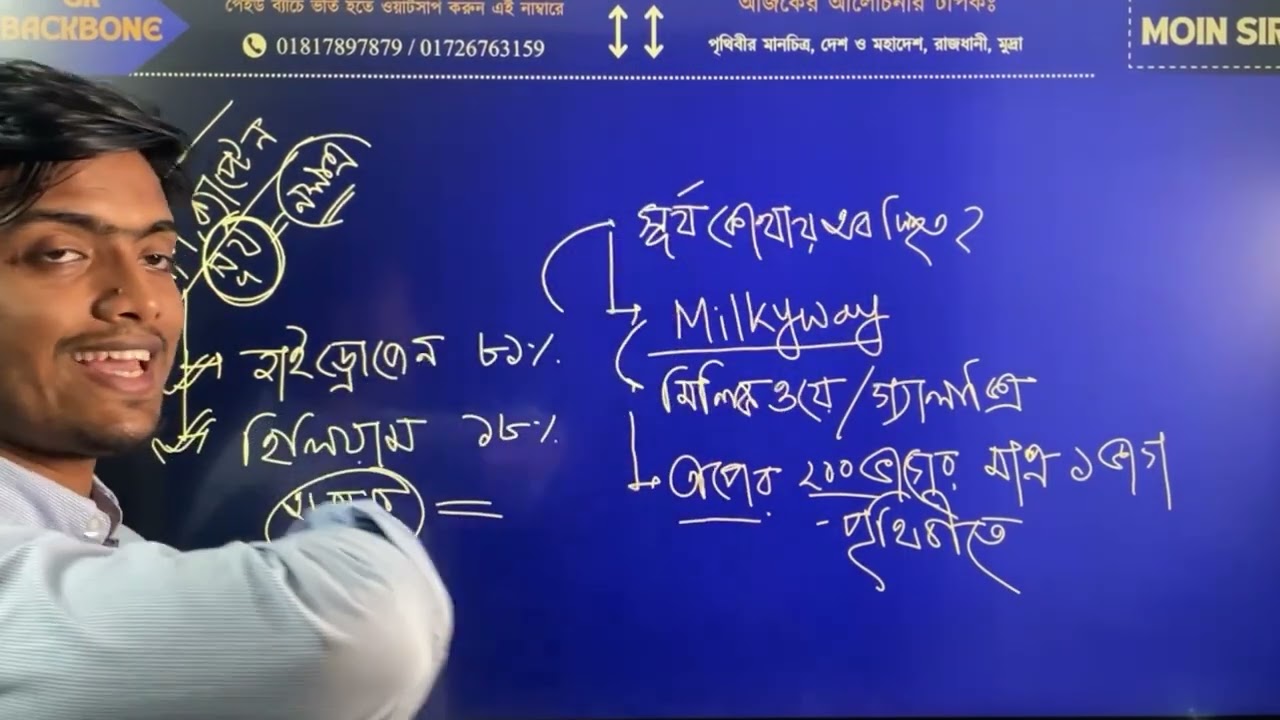 GK
BACKBONE
পেইড ব্যাচে ভর্তি হতে ওয়াটসাপ করুন এই নাম্বারে
01817897879 / 01726763159
আজকের আলোচনার টপিকঃ
পৃথিবীর মানচিত্র, দেশ ও মহাদেশ, রাজধানী, মুদ্রা
MOIN SIR
কাপ্টেন
নক্ষত্র
সূর্য
হাইড্রোজেন ৮১%.
হিলিয়াম ১৮%.
সূর্য কোথায় অবস্থিত?
Milkyway
মিলিক্স ওয়ে/গ্যালাক্সি
তাপের ২০০ভাগের মাত্র ১ ভাগ
- পৃথিবীতে